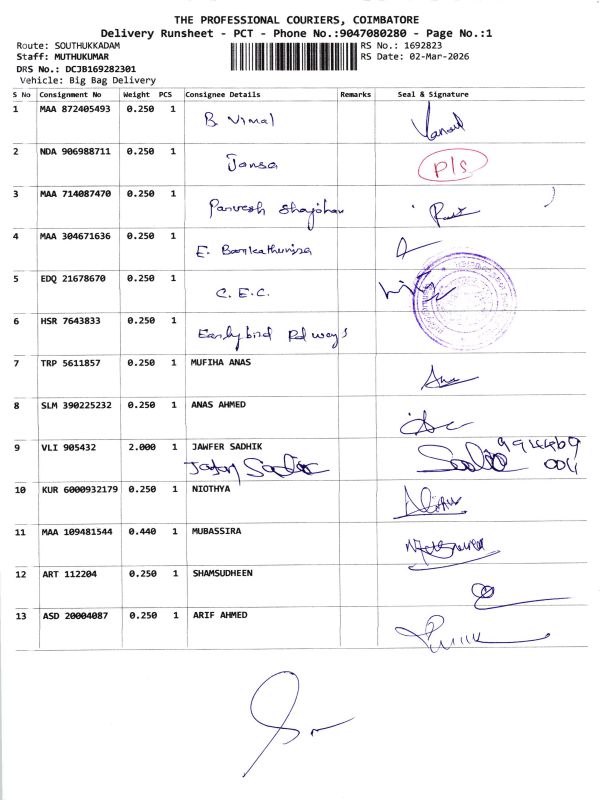 THE PROFESSIONAL COURIERS, COIMBATORE
Delivery Runsheet - PCT - Phone No.:9047080280 - Page No.:1
Route: SOUTHUKKADAM RS No.: 1692823
Staff: MUTHUKUMAR RS Date: 02-Mar-2026
DRS No.: DCJB169282301
Vehicle: Big Bag Delivery
S No Consignment No Weight PCS Consignee Details Remarks Seal & Signature
1 MAA 872405493 0.250 1 B Vimal
2 NDA 906988711 0.250 1 Jansa P/s
3 MAA 714087470 0.250 1 Parvesh Shajohan
4 MAA 304671636 0.250 1 E.
5 EDQ 21678670 0.250 1 C.E.C.
6 HSR 7643833 0.250 1 Earlybird
7 TRP 5611857 0.250 1 MUFIHA ANAS
8 SLM 390225232 0.250 1 ANAS AHMED
9 VLI 905432 2.000 1 JAWFER SADHIK
10 KUR 6000932179 0.250 1 NIOTHYA
11 MAA 109481544 0.440 1 MUBASSIRA
12 ART 112204 0.250 1 SHAMSUDHEEN
13 ASD 20004087 0.250 1 ARIF AHMED